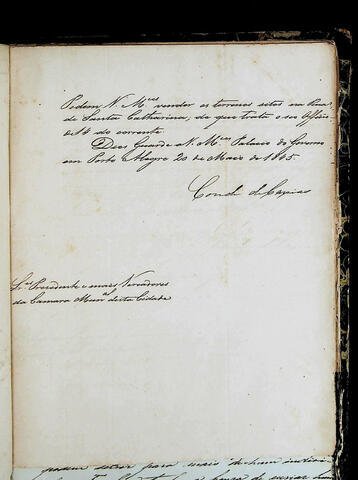 Podem V. M.ces vender os terrenos sitos na Rua
de Santa Catharina, de que trata o seo Officio
de 14 do corrente.
Deos Guarde a V. M.ces Palacio do Governo
em Porto Alegre 20 de Maio de 1845.
Conde de Caxias
Snr.es Presidente e mais Vereadores
da Camara Mun.al desta Cidade
para mais